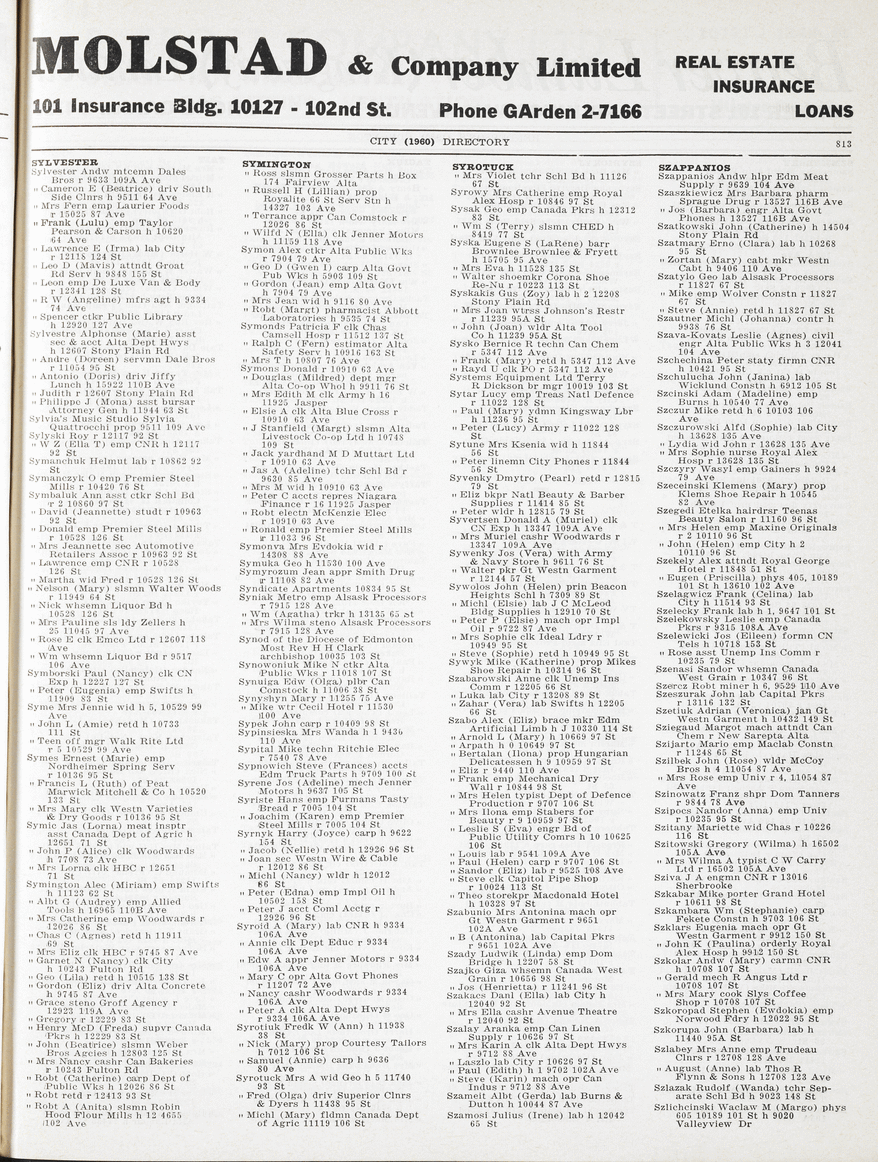 MOLSTAD & Company Limited
REAL ESTATE
INSURANCE
LOANS
101 Insurance Bldg. 10127 - 102nd St.
Phone GArden 2-7166
CITY (1960) DIRECTORY
813
SYLVESTER
Sylvester Andw mtcemn Dales
Bros r 9633 109A Ave
" Cameron E (Beatrice) driv South
Side Clnrs h 9511 64 Ave
" Mrs Fern emp Laurier Foods
r 15025 87 Ave
" Frank (Lulu) emp Taylor
Pearson & Carson h 10620
64 Ave
" Lawrence E (Irma) lab City
r 12118 124 St
" Leo D (Mavis) attndt Groat
Rd Serv h 9848 155 St
" Leon emp De Luxe Van & Body
r 12341 128 St
" R W (Angeline) mfrs agt h 9334
74 Ave
" Spencer ctkr Public Library
h 12920 127 Ave
Sylvestre Alphonse (Marie) asst
sec & acct Alta Dept Hwys
h 12607 Stony Plain Rd
" Andre (Doreen) servmn Dale Bros
r 11054 95 St
" Antonio (Doris) driv Jiffy
Lunch h 15922 110B Ave
" Judith r 12607 Stony Plain Rd
" Philippe J (Mona) asst bursar
Attorney Gen h 11944 63 St
Sylvia's Music Studio Sylvia
Quattrocchi prop 9511 109 Ave
Sylyski Roy r 12117 92 St
" W Z (Ella T) emp CNR h 12117
92 St
Symanchuk Helmut lab r 10862 92
St
Symanczyk O emp Premier Steel
Mills r 10420 76 St
Symbaluk Ann asst ctkr Schl Bd
r 2 10860 97 St
" David (Jeannette) studt r 10963
92 St
" Donald emp Premier Steel Mills
r 10528 126 St
" Mrs Jeannette sec Automotive
Retailers Assoc r 10963 92 St
" Lawrence emp CNR r 10528
126 St
" Martha wid Fred r 10528 126 St
" Nelson (Mary) slsmn Walter Woods
r 11949 64 St
" Nick whsemn Liquor Bd h
10528 126 St
" Mrs Pauline sls ldy Zellers h
25 11045 97 Ave
" Rose E clk Emco Ltd r 12607 118
Ave
" Wm whsemn Liquor Bd r 9517
106 Ave
Symborski Paul (Nancy) clk CN
Exp h 12227 127 St
" Peter (Eugenia) emp Swifts h
11909 83 St
Syme Mrs Jennie wid h 5, 10529 99
Ave
" John L (Amie) retd h 10733
111 St
" Teen off mgr Walk Rite Ltd
r 5 10529 99 Ave
Symes Ernest (Marie) emp
Nordheimer Spring Serv
r 10136 95 St
" Francis L (Ruth) of Peat
Marwick Mitchell & Co h 10520
133 St
" Mrs Mary clk Westn Varieties
& Dry Goods r 10136 95 St
Symic Jas (Lorna) meat insptr
asst Canada Dept of Agric h
12651 71 St
" John P (Alice) clk Woodwards
h 7708 73 Ave
" Mrs Lorna clk HBC r 12651
71 St
Symington Alec (Miriam) emp Swifts
h 11123 62 St
" Albt G (Audrey) emp Allied
Tools h 16965 110B Ave
" Mrs Catherine emp Woodwards r
12026 86 St
" Chas C (Agnes) retd h 11911
69 St
" Mrs Eliz clk HBC r 9745 87 Ave
" Garnet N (Nancy) clk City
h 10243 Fulton Rd
" Geo (Lila) retd h 10515 138 St
" Gordon (Eliz) driv Alta Concrete
h 9745 87 Ave
" Grace steno Groff Agency r
12923 119A Ave
" Gregory r 12229 83 St
" Henry McD (Freda) supvr Canada
Pkrs h 12229 83 St
" John (Beatrice) slsmn Weber
Bros Agcies h 12803 125 St
" Mrs Nancy cashr Can Bakeries
r 10243 Fulton Rd
" Robt (Catherine) carp Dept of
Public Wks h 12026 86 St
" Robt retd r 12413 93 St
" Robt A (Anita) slsmn Robin
Hood Flour Mills h 12 4655
102 Ave
SYMINGTON
" Ross slsmn Grosser Parts h Box
174 Fairview Alta
" Russell H (Lillian) prop
Royalite 66 St Serv Stn h
14327 103 Ave
" Terrance appr Can Comstock r
12026 86 St
" Wilfd N (Ella) clk Jenner Motors
h 11159 118 Ave
Symon Alex ctkr Alta Public Wks
r 7904 79 Ave
" Geo D (Gwen I) carp Alta Govt
Pub Wks h 5903 109 St
" Gordon (Jean) emp Alta Govt
h 7904 79 Ave
" Mrs Jean wid h 9116 80 Ave
" Robt (Margt) pharmacist Abbott
Laboratories h 9535 74 St
Symonds Patricia F clk Chas
Camsell Hosp r 11512 137 St
" Ralph C (Fern) estimator Alta
Safety Serv h 10916 163 St
" Mrs T h 10807 76 Ave
Symons Donald r 10910 63 Ave
" Douglas (Mildred) dept mgr
Alta Co-op Whol h 9911 76 St
" Mrs Edith M clk Army h 16
11925 Jasper
" Elsie A clk Alta Blue Cross r
10910 63 Ave
" J Stanfield (Margt) slsmn Alta
Livestock Co-op Ltd h 10748
109 St
" Jack yardhand M D Muttart Ltd
r 10910 63 Ave
" Jas A (Adeline) tchr Schl Bd r
9630 85 Ave
" Mrs M wid h 10910 63 Ave
" Peter C accts repres Niagara
Finance r 16 11925 Jasper
" Robt electn McKenzie Elec
r 10910 63 Ave
" Ronald emp Premier Steel Mills
r 11033 96 St
Symonva Mrs Evdokia wid r
14308 88 Ave
Symuka Geo h 11530 100 Ave
Symyrozum Jean appr Smith Drug
r 11108 82 Ave
Syndicate Apartments 10834 95 St
Syniak Metro emp Alsask Processors
r 7915 128 Ave
" Wm (Agatha) trkr h 13135 65 St
" Mrs Wilma steno Alsask Processors
r 7915 128 Ave
Synod of the Diocese of Edmonton
Most Rev H H Clark
archbishop 10035 103 St
Synowoniuk Mike N ctkr Alta
Public Wks r 11018 107 St
Synuiga Edw (Olga) plbr Can
Comstock h 11006 38 St
Synyshyn Mary r 11255 75 Ave
" Mike wtr Cecil Hotel r 11530
100 Ave
Sypek John carp r 10409 98 St
Sypinsieska Mrs Wanda h 1 9436
110 Ave
Sypital Mike techn Ritchie Elec
r 7540 78 Ave
Sypnowich Steve (Frances) accts
Edm Truck Parts h 9709 100 St
Syrene Jos (Adeline) mech Jenner
Motors h 9637 105 St
Syriste Hans emp Furmans Tasty
Bread r 7005 104 St
" Joachim (Karen) emp Premier
Steel Mills r 7005 104 St
Syrnyk Harry (Joyce) carp h 9622
154 St
" Jacob (Nellie) retd h 12926 96 St
" Joan sec Westn Wire & Cable
r 12012 86 St
" Michl (Nancy) wldr h 12012
86 St
" Peter (Edna) emp Impl Oil h
10502 158 St
" Peter J acct Coml Acctg r
12926 96 St
Syroid A (Mary) lab CNR h 9334
106A Ave
" Annie clk Dept Educ r 9334
106A Ave
" Edw A appr Jenner Motors r 9334
106A Ave
" Mary C opr Alta Govt Phones
r 11207 72 Ave
" Nancy cashr Woodwards r 9334
106A Ave
" Peter A clk Alta Dept Hwys
r 9334 106A Ave
Syrotiuk Fredk W (Ann) h 11938
38 St
" Nick (Mary) prop Courtesy Tailors
h 7012 106 St
" Samuel (Annie) carp h 9636
80 Ave
Syrotuck Mrs A wid Geo h 5 11740
93 St
" Fred (Olga) driv Superior Clnrs
& Dyers h 11438 95 St
" Michl (Mary) fldmn Canada Dept
of Agric 11119 106 St
SYROTUCK
" Mrs Violet tchr Schl Bd h 11126
67 St
Syrowy Mrs Catherine emp Royal
Alex Hosp r 10846 97 St
Sysak Geo emp Canada Pkrs h 12312
83 St
" Wm S (Terry) slsmn CHED h
8419 77 St
Syska Eugene S (LaRene) barr
Brownlee Brownlee & Fryett
h 15705 95 Ave
" Mrs Eva h 11528 135 St
" Walter shoemkr Corona Shoe
Re-Nu r 10223 113 St
Syskakis Gus (Zoy) lab h 2 12208
Stony Plain Rd
" Mrs Joan wtrss Johnson's Restr
r 11239 95A St
" John (Joan) wldr Alta Tool
Co h 11239 95A St
Sysko Bernice R techn Can Chem
r 5347 112 Ave
" Frank (Mary) retd h 5347 112 Ave
" Rayd U clk PO r 5347 112 Ave
Systems Equipment Ltd Terry
R Dickson br mgr 10019 103 St
Sytar Lucy emp Treas Natl Defence
r 11022 128 St
" Paul (Mary) ydmn Kingsway Lbr
h 11236 95 St
" Peter (Lucy) Army r 11022 128
St
Sytune Mrs Ksenia wid h 11844
56 St
" Peter linemn City Phones r 11844
56 St
Syvenky Dmytro (Pearl) retd r 12815
79 St
" Eliz bkpr Natl Beauty & Barber
Supplies r 11414 85 St
" Peter wldr h 12815 79 St
Syvertsen Donald A (Muriel) clk
CN Exp h 13347 109A Ave
" Mrs Muriel cashr Woodwards r
13347 109A Ave
Sywenky Jos (Vera) with Army
& Navy Store h 9611 76 St
" Walter pkr Gt Westn Garment
r 12144 57 St
Sywolos John (Helen) prin Beacon
Heights Schl h 7309 89 St
" Michl (Elsie) lab J C McLeod
Bldg Supplies h 12910 70 St
" Peter P (Elsie) mach opr Impl
Oil r 9722 87 Ave
" Mrs Sophie clk Ideal Ldry r
10949 95 St
" Steve (Sophie) retd h 10949 95 St
Sywyk Mike (Katherine) prop Mikes
Shoe Repair h 10314 96 St
Szabarowski Anne clk Unemp Ins
Comm r 12205 66 St
" Luka lab City r 13208 89 St
" Zahar (Vera) lab Swifts h 12205
66 St
Szabo Alex (Eliz) brace mkr Edm
Artificial Limb h J 10330 114 St
" Arnold L (Mary) h 10669 97 St
" Arpath h 0 10649 97 St
" Bertalan (Ilona) prop Hungarian
Delicatessen h 9 10959 97 St
" Eliz r 9440 110 Ave
" Frank emp Mechanical Dry
Wall r 10844 98 St
" Mrs Helen typist Dept of Defence
Production r 9707 106 St
" Mrs Ilona emp Stabers for
Beauty r 9 10959 97 St
" Leslie S (Eva) engr Bd of
Public Utility Comrs h 10 10625
106 St
" Louis lab r 9541 109A Ave
" Paul (Helen) carp r 9707 106 St
" Sandor (Eliz) lab r 9525 108 Ave
" Steve clk Capitol Pipe Shop
r 10024 113 St
" Theo storekpr Macdonald Hotel
h 10328 97 St
Szabunio Mrs Antonina mach opr
Gt Westn Garment r 9651
102A Ave
" B (Antonina) lab Capital Pkrs
r 9651 102A Ave
Szady Ludwik (Linda) emp Dom
Bridge h 12207 58 St
Szajko Giza whsemn Canada West
Grain r 10656 98 St
" Jos (Henrietta) r 11241 96 St
Szakacs Dani (Ella) lab City h
12040 92 St
" Mrs Ella cashr Avenue Theatre
r 12040 92 St
Szalay Aranka emp Can Linen
Supply r 10626 97 St
" Mrs Karin A clk Alta Dept Hwys
r 9712 88 Ave
" Laszlo lab City r 10626 97 St
" Paul (Edith) h 1 9702 102A Ave
" Steve (Karin) mach opr Can
Indus r 9712 88 Ave
Szameit Albt (Gerda) lab Burns &
Dutton h 10044 87 Ave
Szamosi Julius (Irene) lab h 12042
65 St
SZAPPANIOS
Szappanios Andw hlpr Edm Meat
Supply r 9639 104 Ave
Szaszkiewicz Mrs Barbara pharm
Sprague Drug r 13527 116B Ave
" Jos (Barbara) engr Alta Govt
Phones h 13527 116B Ave
Szatkowski John (Catherine) h 14504
Stony Plain Rd
Szatmary Erno (Clara) lab h 10268
95 St
" Zortan (Mary) cabt mkr Westn
Cabt h 9406 110 Ave
Szatylo Geo lab Alsask Processors
r 11827 67 St
" Mike emp Wolver Constn r 11827
67 St
" Steve (Annie) retd h 11827 67 St
Szautner Michl (Johanna) contr h
9938 76 St
Szava-Kovats Leslie (Agnes) civil
engr Alta Public Wks h 3 12041
104 Ave
Szchechina Peter staty firmn CNR
h 10421 95 St
Szchulucha John (Janina) lab
Wicklund Constn h 6912 105 St
Szcinski Adam (Madeline) emp
Burns h 10540 77 Ave
Szczur Mike retd h 6 10103 106
Ave
Szczurowski Alfd (Sophie) lab City
h 13628 135 Ave
" Lydia wid John r 13628 135 Ave
" Mrs Sophie nurse Royal Alex
Hosp r 13628 135 St
Szczyry Wasyl emp Gainers h 9924
79 Ave
Szeceinski Klemens (Mary) prop
Klems Shoe Repair h 10545
82 Ave
Szegedi Etelka hairdrsr Teenas
Beauty Salon r 11160 96 St
" Mrs Helen emp Maxine Originals
r 2 10110 96 St
" John (Helen) emp City h 2
10110 96 St
Szekely Alex attndt Royal George
Hotel r 11848 51 St
" Eugen (Priscilla) phys 405, 10189
101 St h 13610 102 Ave
Szelagwicz Frank (Celina) lab
City h 11514 93 St
Szelecky Frank lab h 1, 9647 101 St
Szelekowsky Leslie emp Canada
Pkrs r 9315 108A Ave
Szelewicki Jos (Eileen) formn CN
Tels h 10718 153 St
" Rose asst Unemp Ins Comm r
10235 79 St
Szenasi Sandor whsemn Canada
West Grain r 10347 96 St
Szercz Robt miner h 6, 9529 110 Ave
Szeszurak John lab Capital Pkrs
r 13116 132 St
Szetiuk Adrian (Veronica) jan Gt
Westn Garment h 10432 149 St
Sziegaud Margot mach attndt Can
Chem r New Sarepta Alta
Szijarto Mario emp Maclab Constn
r 11248 65 St
Szilbek John (Rose) wldr McCoy
Bros h 4 11054 87 Ave
" Mrs Rose emp Univ r 4, 11054 87
Ave
Szinowatz Franz shpr Dom Tanners
r 9844 78 Ave
Szipocs Nandor (Anna) emp Univ
r 10235 95 St
Szitany Mariette wid Chas r 10226
116 St
Szitowski Gregory (Wilma) h 16502
105A Ave
" Mrs Wilma A typist C W Carry
Ltd r 16502 105A Ave
Sziva J A engmn CNR r 13016
Sherbrooke
Szkabar Mike porter Grand Hotel
r 10611 98 St
Szkambara Wm (Stephanie) carp
Fekete Constn h 9703 106 St
Szklars Eugenia mach opr Gt
Westn Garment r 9912 150 St
" John K (Paulina) orderly Royal
Alex Hosp h 9912 150 St
Szkolar Andw (Mary) carmn CNR
h 10708 107 St
" Gerald mech R Angus Ltd r
10708 107 St
" Mrs Mary cook Slys Coffee
Shop r 10708 107 St
Szkoropad Stephen (Ewdokia) emp
Norwood Fdry h 12022 95 St
Szkorupa John (Barbara) lab h
11440 95A St
Szlabey Mrs Anne emp Trudeau
Clnrs r 12708 128 Ave
" August (Anne) lab Thos R
Flynn & Sons h 12708 123 Ave
Szlazak Rudolf (Wanda) tchr Sep-
arate Schl Bd h 9023 148 St
Szlichcinski Waclaw M (Margo) phys
605 10189 101 St h 9020
Valleyview Dr